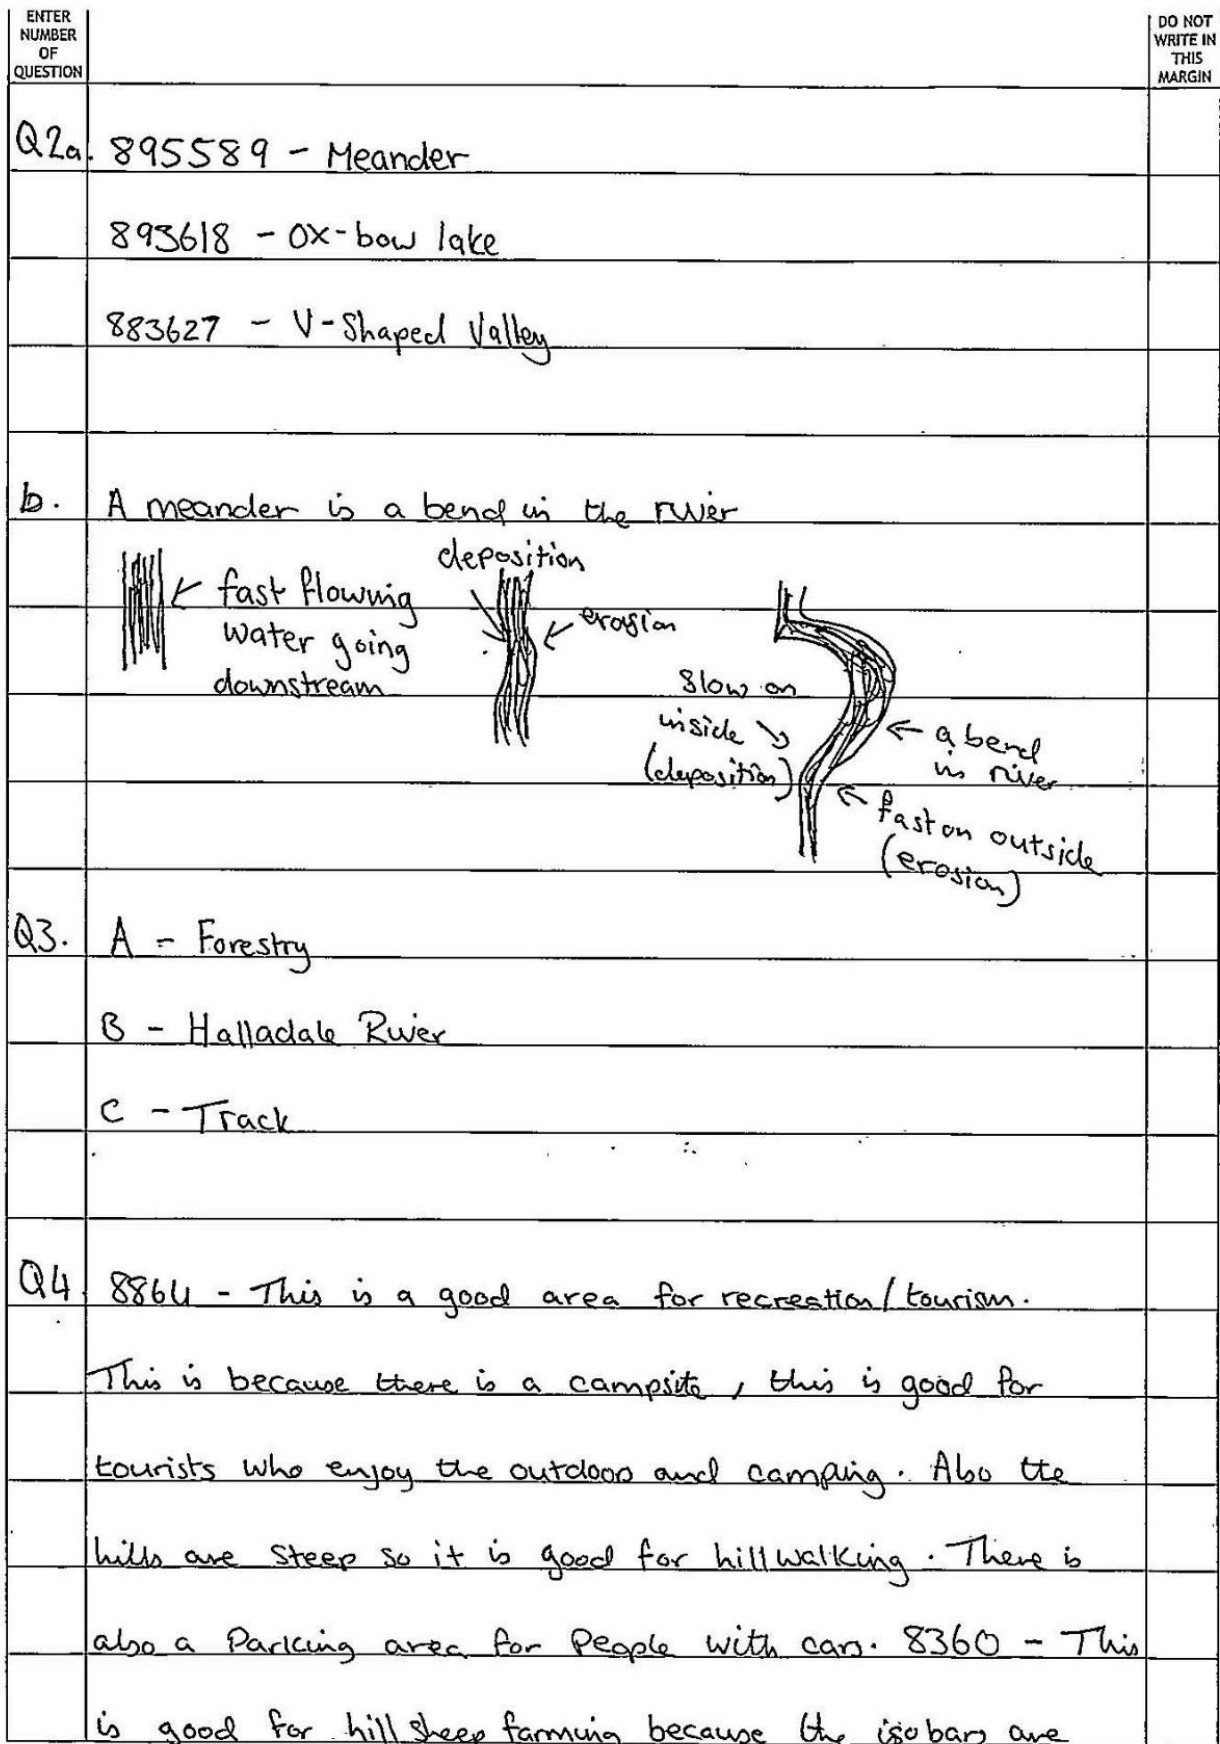 ENTER
NUMBER
OF
QUESTION
DO NOT
WRITE IN
THIS
MARGIN
Q2a. 895589 - Meander
893618 - Ox-bow lake
883627 - V-Shaped Valley
b. A meander is a bend in the river
fast flowing
water going
downstream
deposition
erosion
Slow on
inside
(deposition)
a bend
in river
fast on outside
(erosion)
Q3. A - Forestry
B - Halladale River
C - Track
Q4 8864 - This is a good area for recreation/tourism.
This is because there is a campsite, this is good for
tourists who enjoy the outdoors and camping. Also the
hills are steep so it is good for hillwalking. There is
also a Parking area for People with cars. 8360 - This
is good for hill sheep farming because the isobars are